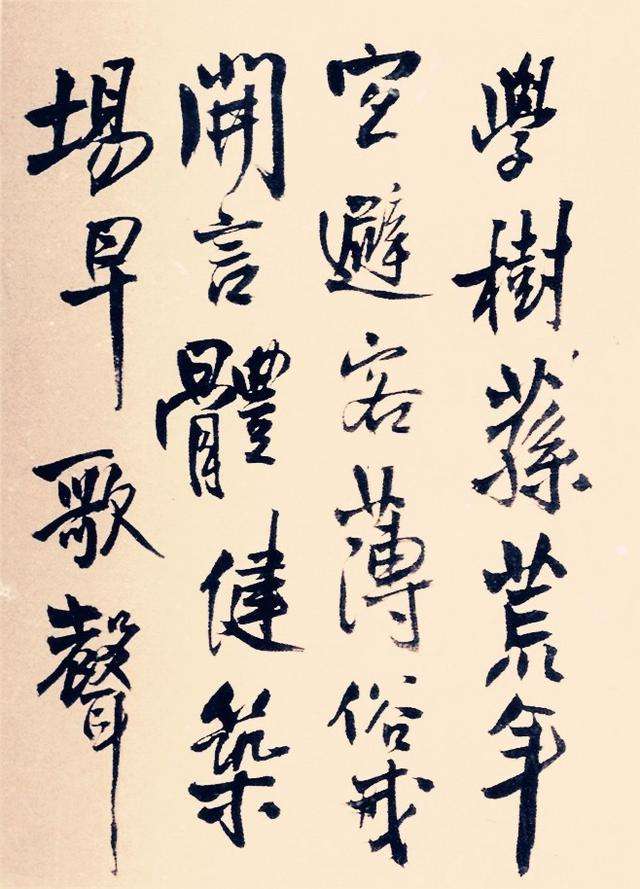 學樹蓀荒年
宜避客薄俗戒
開言體健築
場早歌聲